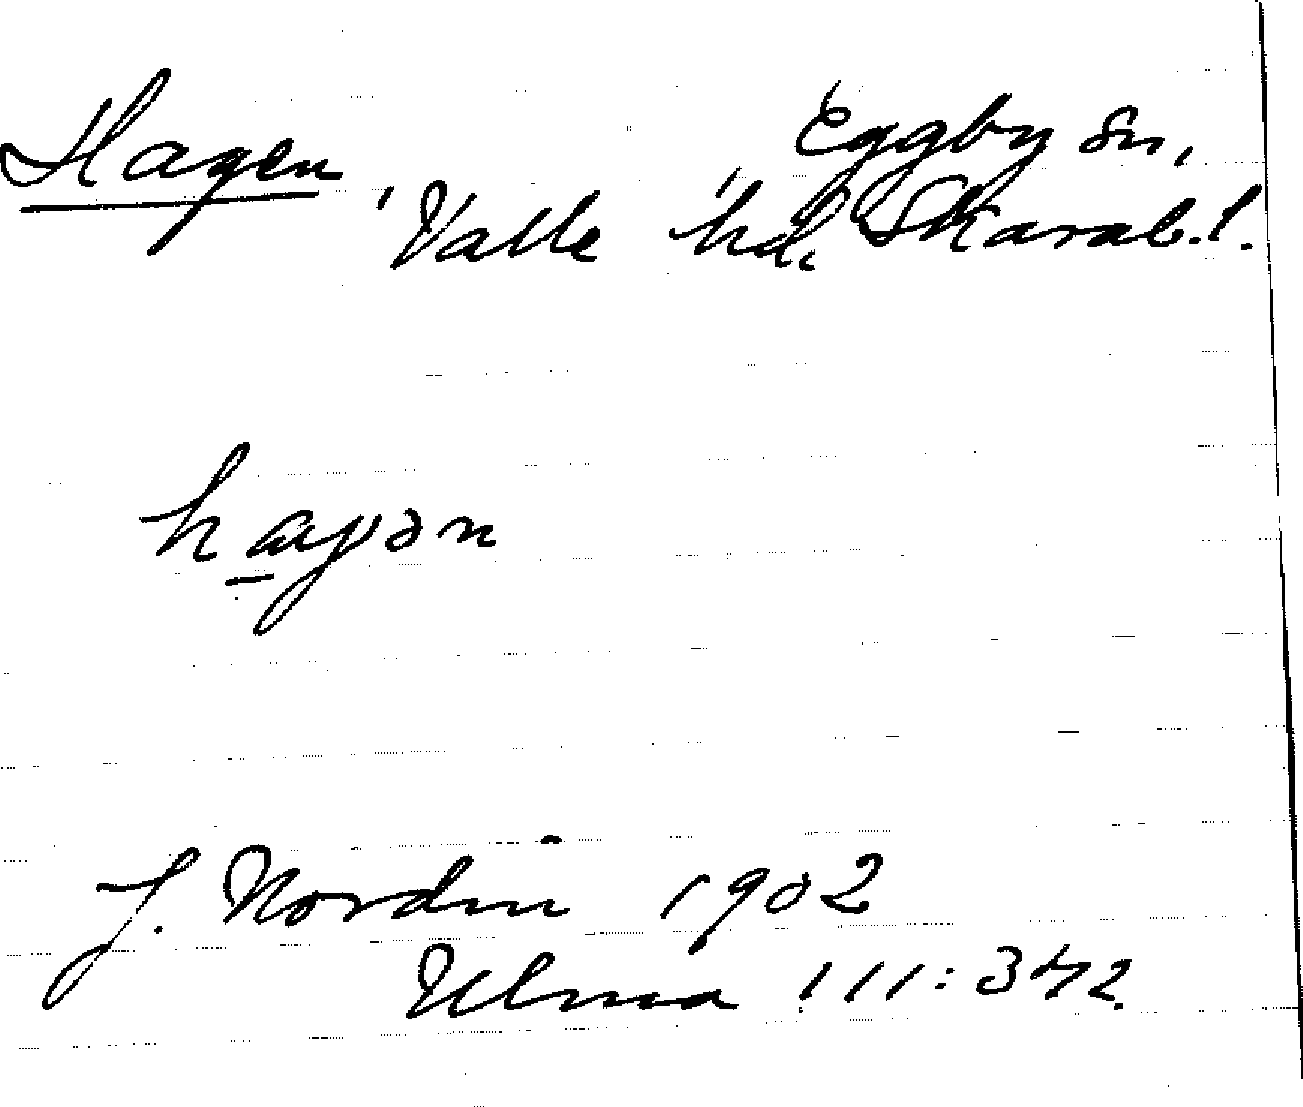 Hagen, Eggby sn,
Valle hd, Skarab. l.
hagən
J. Nordin 1902
Ulma 111:342.